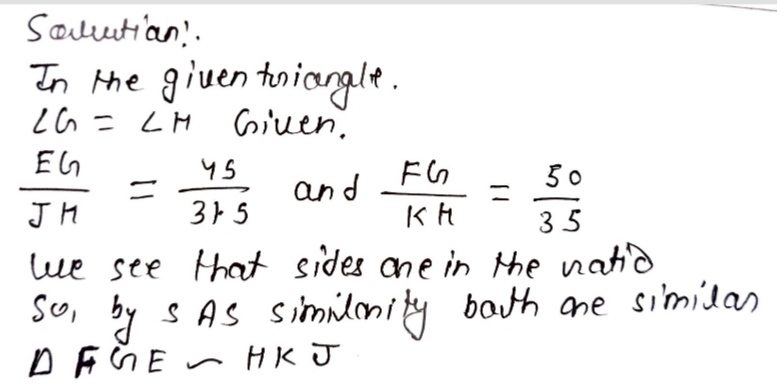 Solution:.
In the given triangle.
∠G = ∠H Given.
EG/JH = 45/31.5 and FG/KH = 50/35
We see that sides are in the ratio
So, by SAS similarity both are similar
Δ FGE ~ HKJ